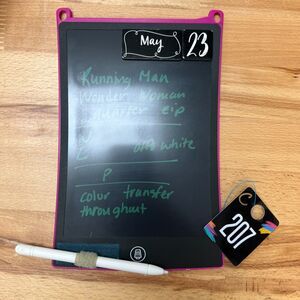 May 23
Running Man
Wonder Woman
quarter zip
off white
P
color transfer
throughout
207